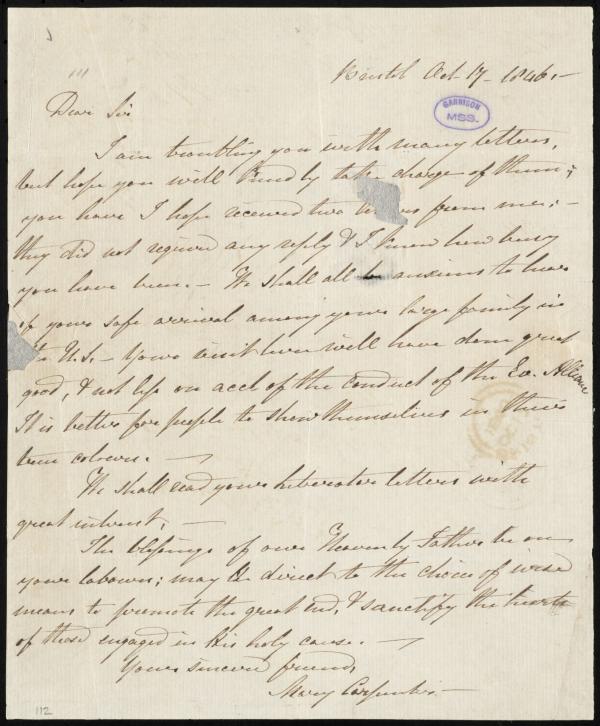 Bristol Oct 17 - 1846. -
GARRISON
MSS.
Dear Sir
I am troubling you with many letters,
but hope you will kindly take charge of them; -
you have I hope received two letters from me; -
they did not require any reply & I know how busy
you have been. - We shall all be anxious to hear
of your safe arrival among your large family in
the U.S. - Your visit here will have done great
good, & not less on acct of the conduct of the Ev. Alliance
It is better for people to show themselves in their
true colours. -
We shall read your Liberator letters with
great interest. -
The blessings of our Heavenly Father be on
your labours; may He direct to the choice of wise
means to promote the great end, & sanctify the hearts
of those engaged in His holy cause. -
Your sincere friend,
Mary Carpenter. -
112